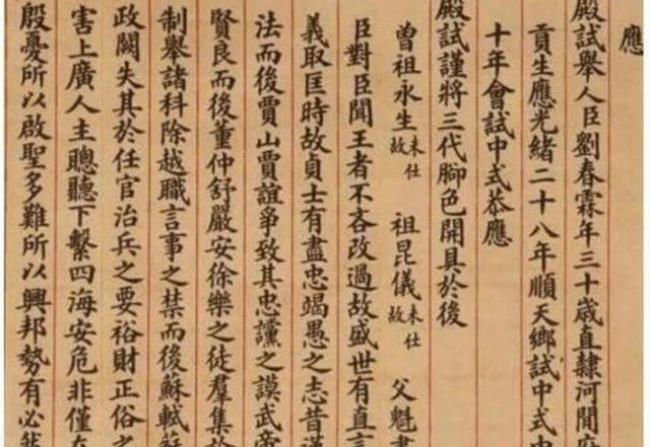 應
殿試舉人臣劉春霖年三十歲直隸河間
貢生應光緒二十八年順天鄉試中式
十年會試中式恭應
殿試謹將三代腳色開具於後
曾祖永生未仕故 祖昆儀未仕故 父魁書
臣對臣聞王者不吝改過故盛世有直言
義取匡時故貞士有盡忠竭愚之志昔漢
法而後賈山賈誼爭致其忠讜之謨武帝
賢良而後董仲舒嚴安徐樂之徒羣集於
制舉諸科除越職言事之禁而後蘇軾蘇
政闕失其於任官治兵之要裕財正俗之
害上廣人主聰聽下繫四海安危非僅在
殷憂所以啟聖多難所以興邦勢有必然